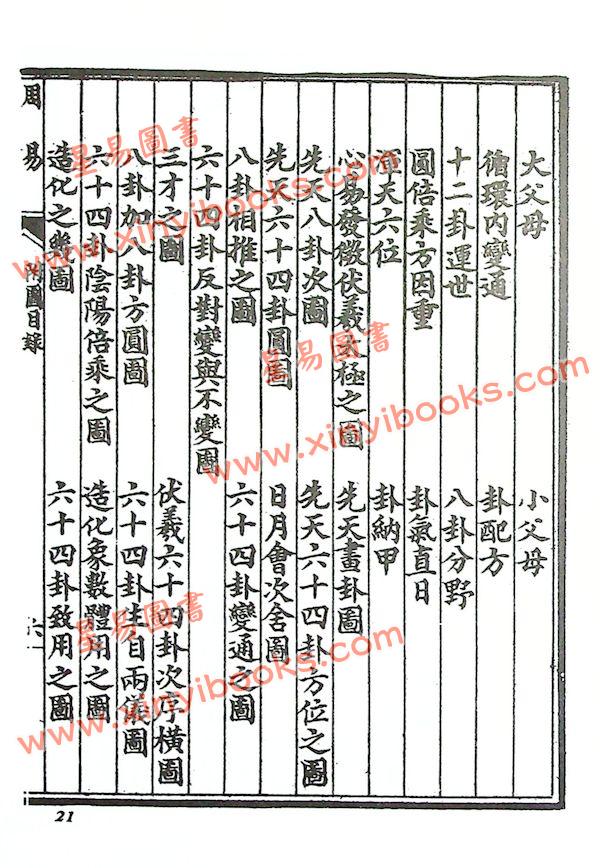 大父母 小父母
循環內變通 卦配方
十二卦運世 八卦分野
圓倍乘方因重 卦氣直日
天六位 卦納甲
心易發微伏羲太極之圖 先天畫卦圖
先天八卦次圖 先天六十四卦方位之圖
先天六十四卦圓圖 日月會次舍圖
八卦相推之圖 六十四卦變通之圖
六十四卦反對變與不變圖
三才之圖 伏羲六十四卦次序橫圖
八卦加八卦方圓圖 六十四卦生自兩儀圖
六十四卦陰陽倍乘之圖 造化象數體用之圖
造化之幾圖 六十四卦致用之圖
周易 附圖目錄
21
星易圖書
www.xinyibooks.com
星易圖書
www.xinyibooks.com
星易圖書
www.xinyibooks.com